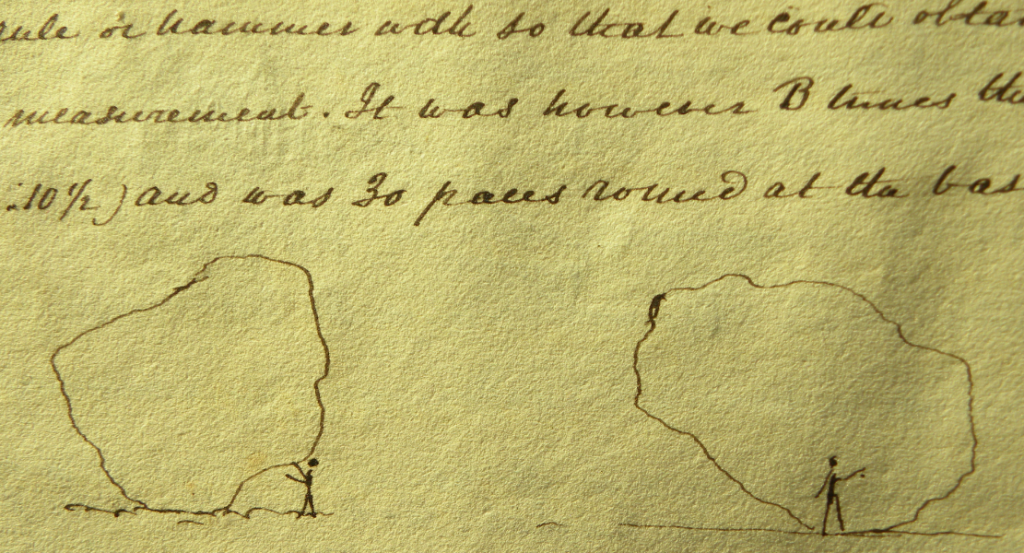 rule or hammer with so that we could obta
measurement. It was however B times the
.10½) and was 30 paces round at the bas